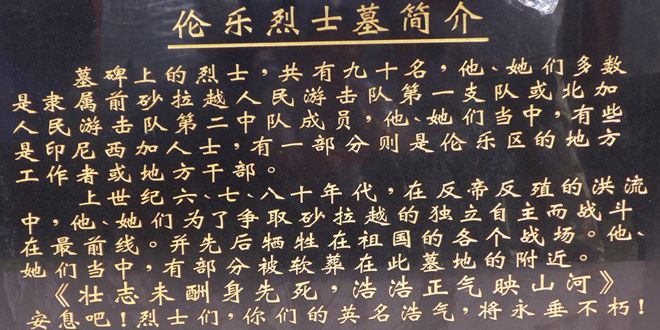 伦乐烈士墓简介
墓碑上的烈士,共有九十名,他、她们多数
是隶属前砂拉越人民游击队第一支队或北加
人民游击队第二中队成员,他、她们当中,有些
是印尼西加人士,有一部分则是伦乐区的地方
工作者或地方干部。
上世纪六、七、八十年代,在反帝反殖的洪流
中,他、她们为了争取砂拉越的独立自主而战斗
在最前线。并先后牺牲在祖国的各个战场。他、
她们当中,有部分被软葬在此墓地的附近。
《壮志未酬身先死,浩浩正气映山河》
安息吧!烈士们,你们的英名浩气,将永垂不朽!